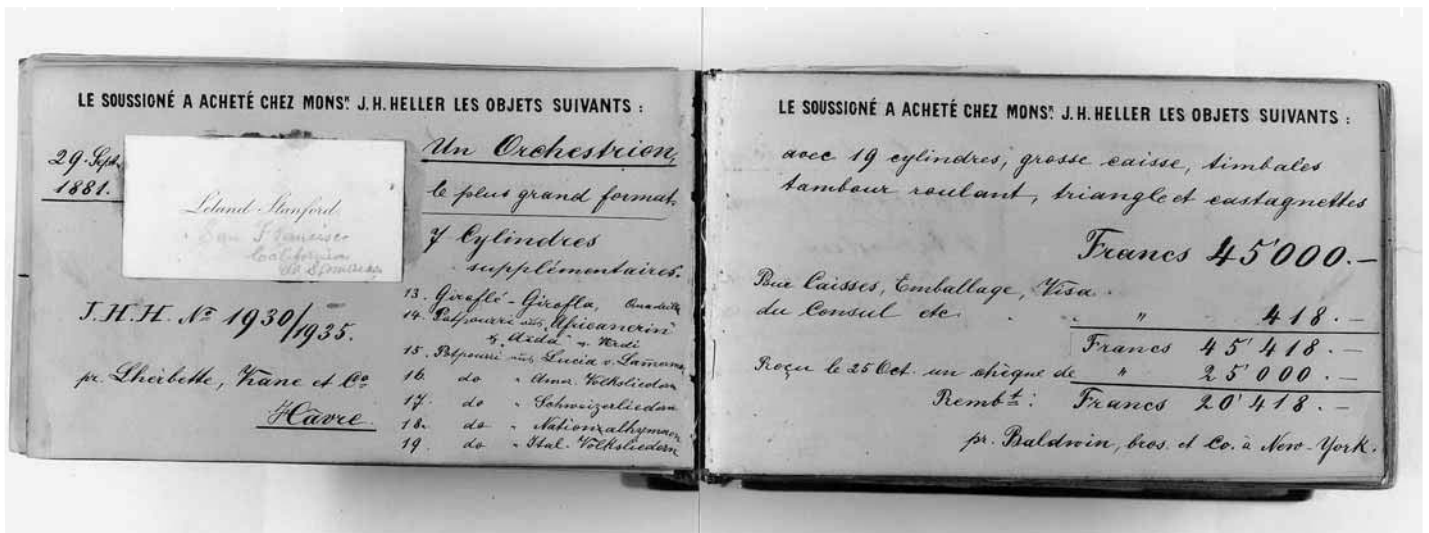 LE SOUSSIONÉ A ACHETÉ CHEZ MONSR. J.H. HELLER LES OBJETS SUIVANTS :
29. Sept.
1881.
Leland Stanford
San Francisco
California
J.H.H. No 1930/1935.
pr. Lherbette, Kane et Co
Hâvre.
Un Orchestrion,
le plus grand format
7 Cylindres
supplémentaires.
13. Giroflé-Girofla, Quadrille
14. Potpourri aus „Africanerin"
& „Aïda" v. Verdi
15. Potpourri aus Lucia v. Lamermo
16. do „ Amer. Volksliedern
17. do „ Schweizerliedern
18. do „ Nationalhymnen
19. do „ Ital. Volksliedern
LE SOUSSIONÉ A ACHETÉ CHEZ MONSR. J.H. HELLER LES OBJETS SUIVANTS :
avec 19 cylindres, grosse caisse, timbales
tambour roulant, triangle et castagnettes
Francs 45'000.—
Pour Caisses, Emballage, Visa
du Consul etc. „ 418.—
Francs 45'418.—
Reçu le 25 Oct. un chèque de „ 25'000.—
Rembt: Francs 20'418.—
pr. Baldwin, bros. et Co. à New-York.